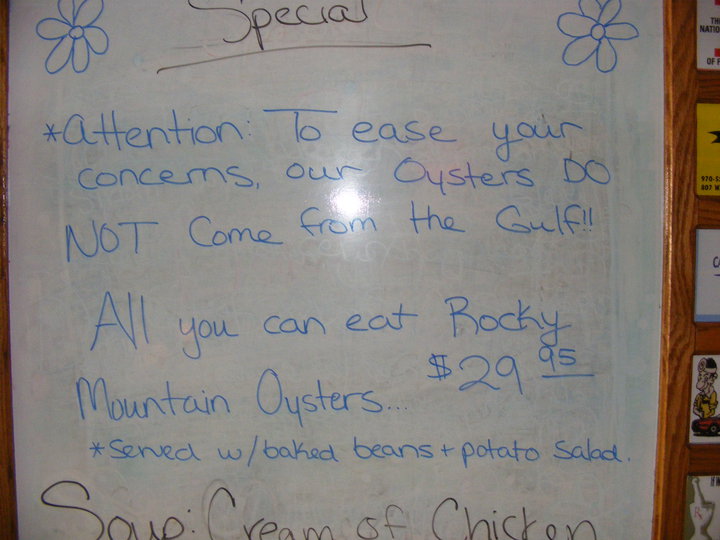 Special
*Attention: To ease your
concerns, our Oysters DO
NOT Come from the Gulf!!
All you can eat Rocky
Mountain Oysters... $29 95
*Served w/baked beans + potato Salad.
Soup: Cream of Chicken